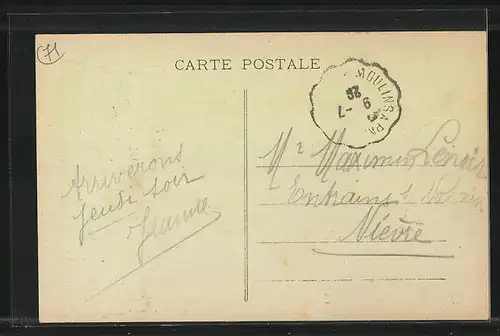 71
CARTE POSTALE
MOULINS A PA
26
9 -7
Arriverons
jeudi soir
Jeanne
Mr Maximin Lenoir
Entrains s/ Nohain
Nièvre